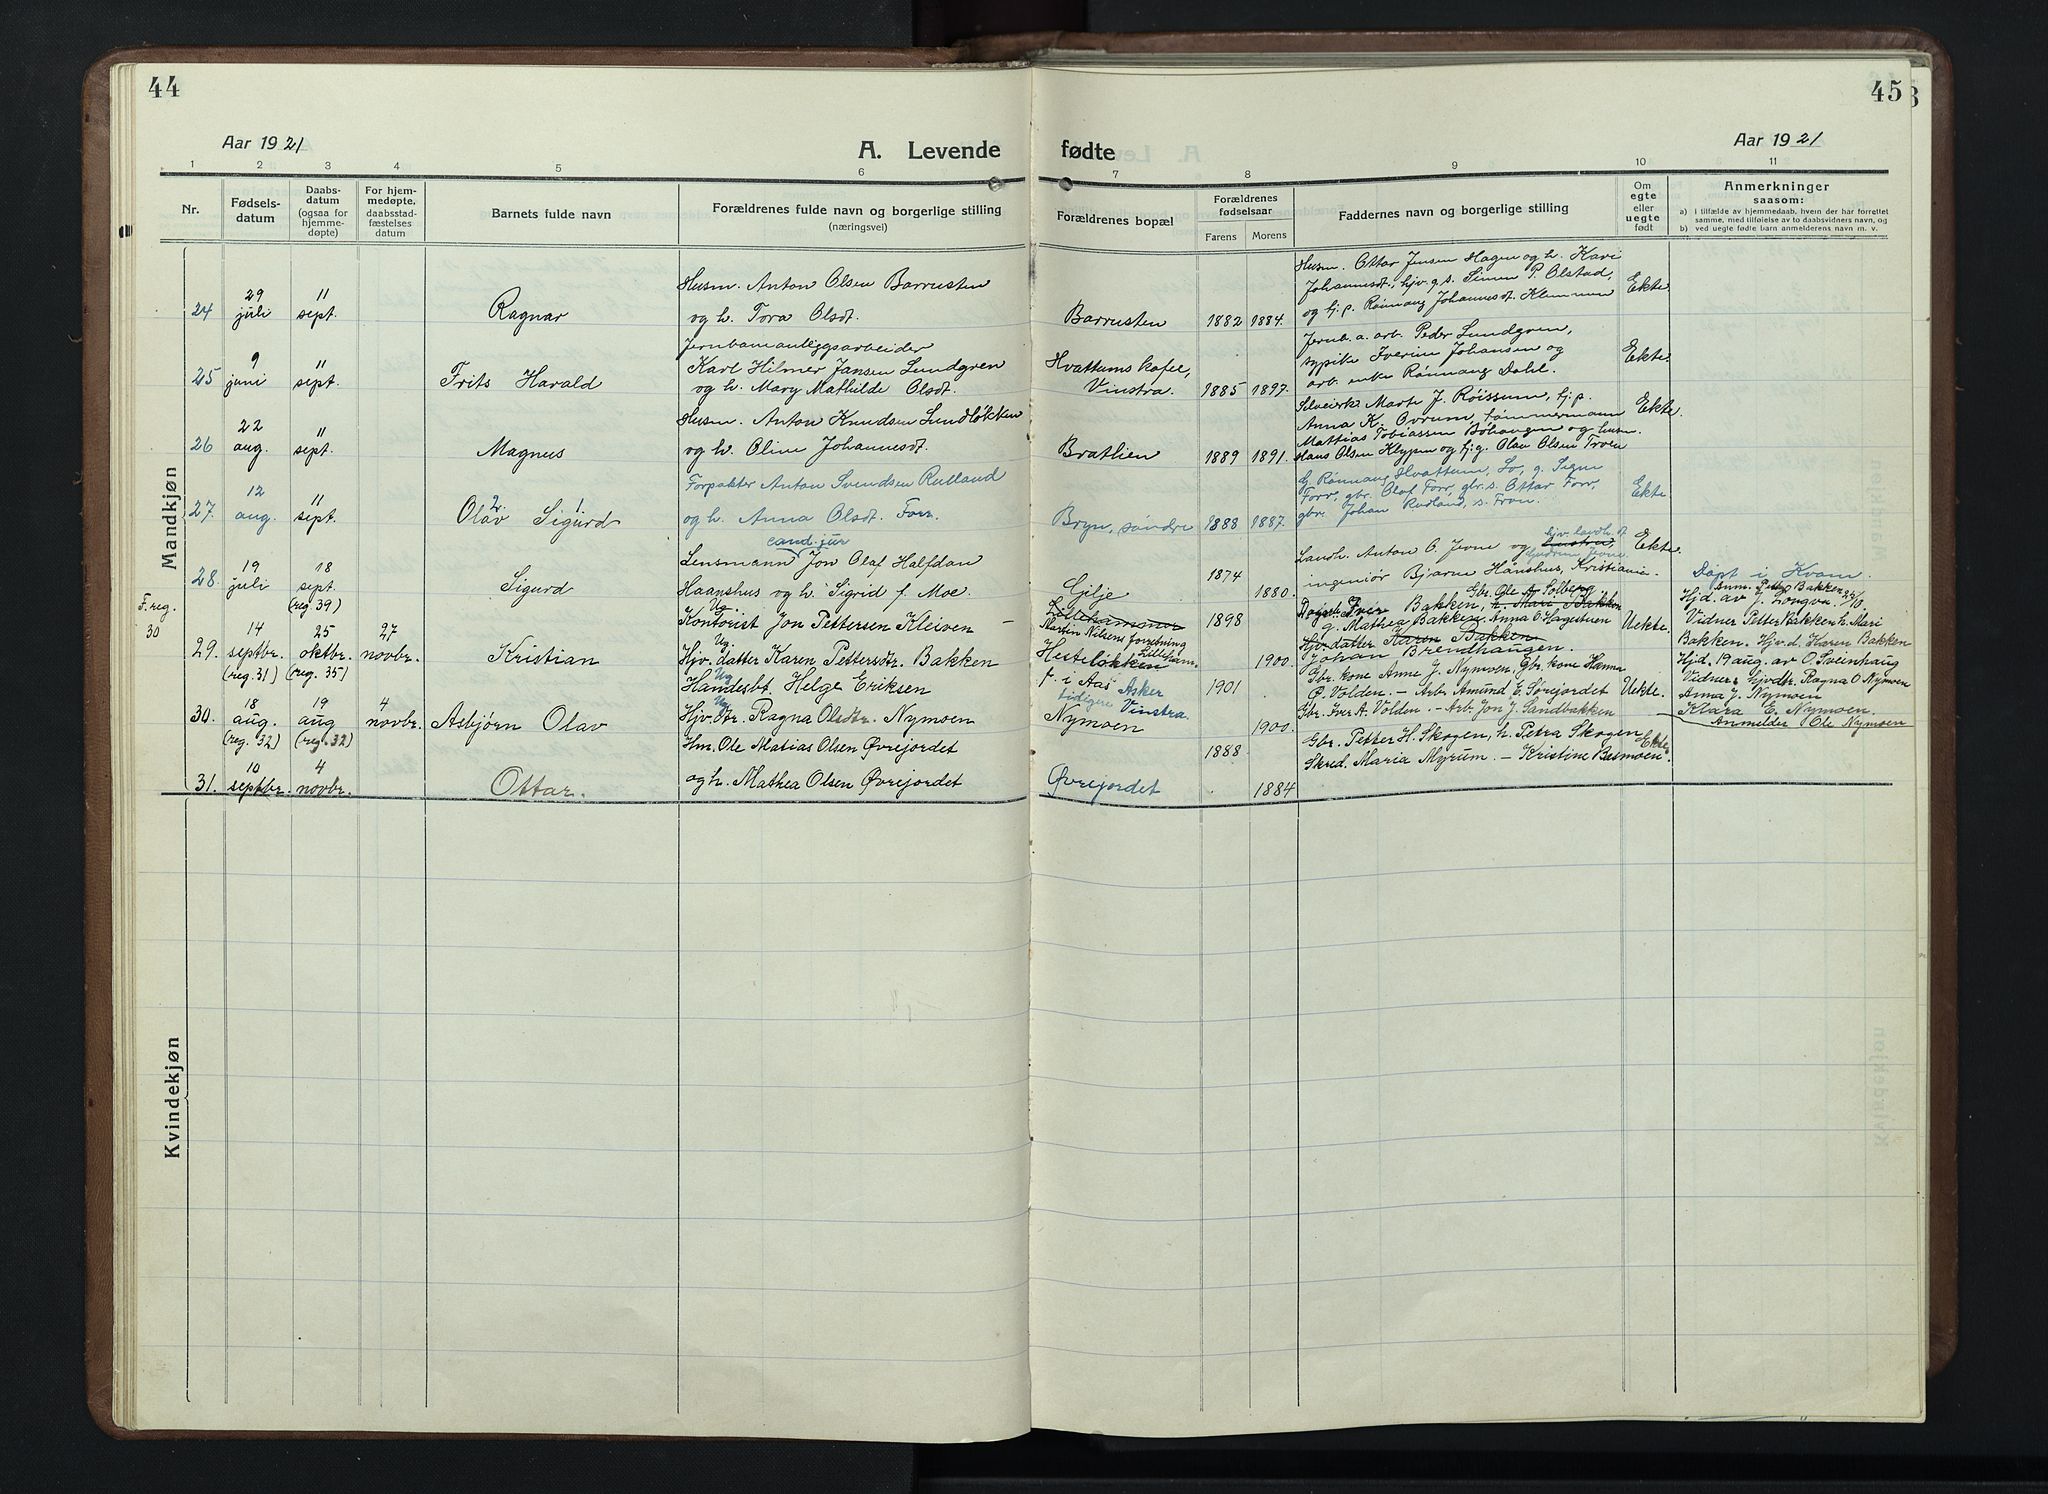 44
45
Aar 1921
A. Levende fødte
Aar 1921
1 2 3 4 5 6 7 8 9 10 11
Nr.
Fødsels-
datum
Daabs-
datum
(ogsaa for
hjemme-
døpte)
For hjem-
medøpte,
daabsstad-
fæstelses
datum
Barnets fulde navn
Forældrenes fulde navn og borgerlige stilling
(næringsvei)
Forældrenes bopæl
Forældrenes
fødselsaar
Farens Morens
Faddernes navn og borgerlige stilling
Om
egte
eller
uegte
født
Anmerkninger
saasom:
a) i tilfælde av hjemmedaab, hvem der har forrettet
samme, med tilføielse av to daabsvidners navn, og
b) ved uegte fødte barn anmelderens navn m. v.
Mandkjøn
24
29
juli
11
sept.
Ragnar
Husm. Anton Olsen Barrusten
og h. Tora Olsdt.
Barrusten
1882 1884.
Husm. Ottar Jensen Hagen og h. Kari
Johannesdt., hjv. g.s. Simen P. Olstad,
og hj.p. Rønnaug Johannesdt. Klemmen
Ekte
25
9
juni
11
sept.
Frits Harald
Jernbaneanlæggsarbeider
Karl Hilmer Jansen Lundgren
og h. Mary Mathilde Olsdt.
Hvattums kafee,
Vinstra.
1885 1897.
Jernb. a. arb. Peder Lundgren,
sypike Iverine Johansen og
arb. enke Rønnaug Dahl.
Ekte.
26
22
aug.
11
sept.
Magnus
Husm. Anton Knudsen Lundløkken
og h. Oline Johannesdt.
Bratlien
1889 1891.
Marte J. Røissum, hj.p.
Anna K. Ovrum, tømmermann
Mattias Tobiassen Bøhaugen og husm.
Hans Olsen Klypen og hj.g. Olav Olsen Troen
Ekte.
27.
12
aug.
11
sept.
Olav 2. Sigurd 1.
Forpakter Anton Svendsen Rutland
og h. Anna Olsdt. Forr.
Bryn, søndre
1888 1887.
G. Rønnaug Hvattum, So, g. Signe
Forr, gbr. Olaf Forr, gbr. s. Ottar Forr,
gbr. Johan Rudland, s. Fron.
Ekte
28.
19
juli
18
sept.
(reg. 39)
Sigurd
cand. jur
Lensmann Jon Olaf Halfdan
Haanshus og h. Sigrid f. Moe.
Gilje
1874
1880.
hjv. landh. dt
Landh. Anton O. Jevne og Gudrun Jevne
ingeniør Bjarne Hånshus, Kristiania.
Ekte.
Døpt i Kvam.
F. reg.
30
29.
14
septbr.
(reg. 31)
25
oktbr.
(reg. 35)
27
novbr.
Kristian
Ug.
Kontorist Jon Pettersen Kleiven
Ug
Hjv. datter Karen Pettersdtr. Bakken
Lillehammer
Martin Nilsens forretning
Lilleham.
Hesteløkken
1898
1900.
Gbr. Ole Solberg
Iver Bakken, h. Mari Bakken
g. Mathea Bakken Anna O Hagestuen
Hjv. datter Karen Bakken
Johan Brendhaugen.
Uekte.
Hjd. av J. Longva. 22/10.
Vidner Petter Bakken h. Mari
Bakken. Hjv. d. Karen Bakken
30.
18
aug.
(reg. 32)
19
aug
(reg. 32)
4
novbr.
Asbjørn Olav
Ug
Handesbt. Helge Eriksen
Ug
Hjv. dtr. Ragna Olsdtr. Nymoen
f. i Aas Asker
tidligere Vinstra.
Nymoen
1901
1900.
Gbr. kone Anne J. Nymoen, Gbr. kone Hanna
P. Volden. – Arb. Amund E. Sørejordet
Gbr. Iver A. Volden. – Arb. Jon J. Sandbakken
Uekte.
Hjd. 19 aug. av O. Sveinhaug
Vidner: Hjvdtr. Ragna O Nymoen
Anna J. Nymoen
Klara E. Nymoen.
Anmelder Ole Nymoen
31.
10
septbr.
4
novbr.
Ottar.
Hm. Ole Matias Olsen Øvrejordet
og h. Mathea Olsen Øvrejordet
Øvrejordet
1888
1884
Gbr. Petter H. Skogen, h. Petra Skogen
Skred. Maria Myrum. – Kristine Besmoen
Ekte
Kvindekjøn